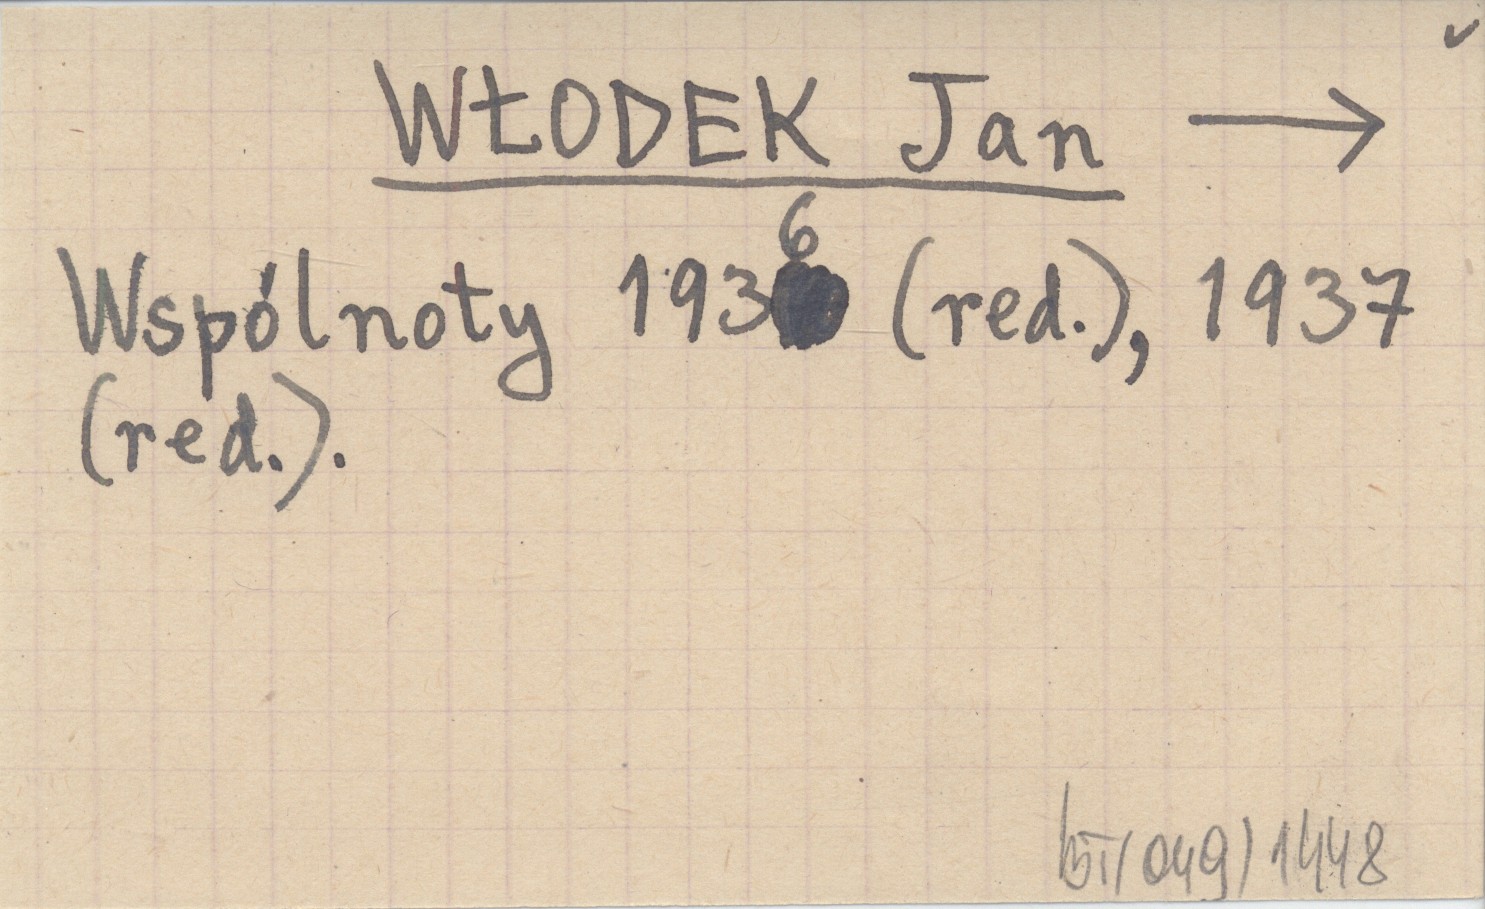 WŁODEK Jan →
Wspólnoty 1936 (red.), 1937
(red.).
1448